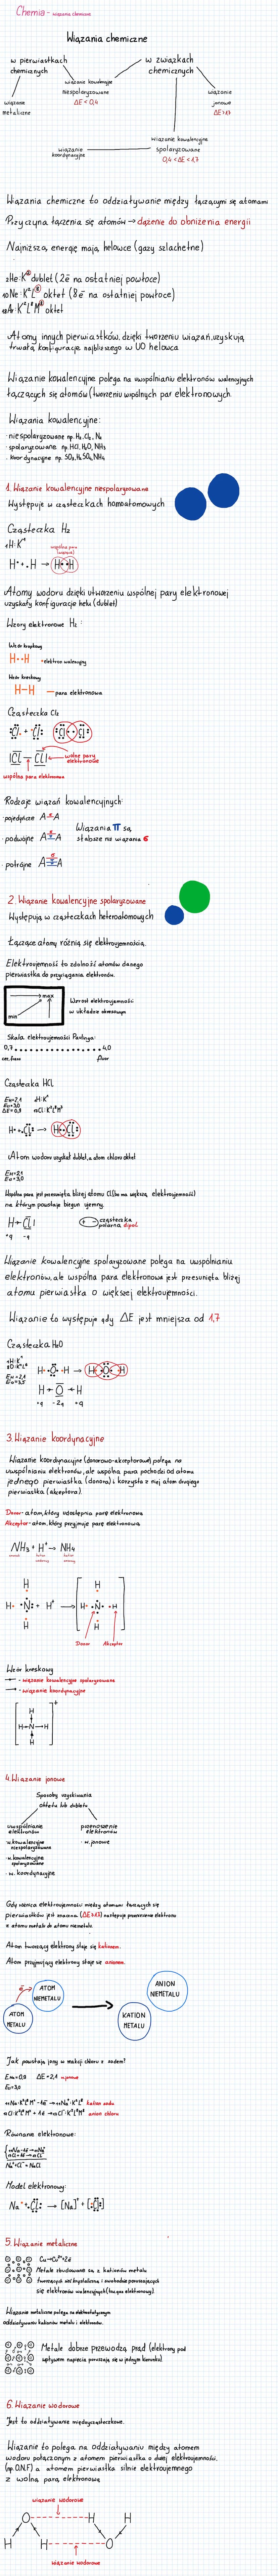 Chemia - wiązania chemiczne
Wiązania chemiczne
w pierwiastkach
chemicznych
w związkach
chemicznych
wiązanie
metaliczne
wiązanie kowalencyjne
niespolaryzowane
ΔE < 0,4
wiązanie
jonowe
ΔE>1,7
wiązanie
koordynacyjne
wiązanie kowalencyjne
spolaryzowane
0,4 < ΔE < 1,7
Wiązania chemiczne to oddziaływanie między łączącymi się atomami
Przyczyna łączenia się atomów → dążenie do obniżenia energii
Najniższą energię mają helowce (gazy szlachetne)
₂He: K² dublet (2ē na ostatniej powłoce)
₁₀Ne: K²L⁸ oktet (8ē na ostatniej powłoce)
₁₈Ar: K²L⁸M⁸ oktet
Atomy innych pierwiastków, dzięki tworzeniu wiązań, uzyskują
trwałą konfigurację najbliższego w UO helowca
Wiązanie kowalencyjne polega na uwspólnianiu elektronów walencyjnych
łączących się atomów (tworzeniu wspólnych par elektronowych
Wiązania kowalencyjne:
· niespolaryzowane np. H₂, Cl₂, N₂
· spolaryzowane np. HCl, H₂O, NH₃
· koordynacyjne np. SO₂, H₂SO₄, NH₄
1. Wiązanie kowalencyjne niespolaryzowane
Występuje w cząsteczkach homoatomowych
Cząsteczka H₂
₁H: K¹
wspólna para
(wiążąca)
H• + •H → H••H
Atomy wodoru dzięki utworzeniu wspólnej pary elektronowej
uzyskały konfigurację helu (dublet)
Wzory elektronowe H₂:
Wzór kropkowy
H••H • elektron walencyjny
Wzór kreskowy
H−H — para elektronowa
Cząsteczka Cl₂
Cl + Cl Cl Cl
|Cl — Cl|
wolne pary
elektronowe
wspólna para elektronowa
Rodzaje wiązań kowalencyjnych:
· pojedyncze A—A
· podwójne A=A
· potrójne A≡A
Wiązania π są
słabsze na wiązania σ
2. Wiązanie kowalencyjne spolaryzowane
Występują w cząsteczkach heteroatomowych
Łączące atomy różnią się elektroujemnością.
Elektroujemność to zdolność atomów danego
pierwiastka do przyciągania elektronów.
max
min
Wzrost elektroujemności
w układzie okresowym
Skala elektroujemności Paulinga:
0,7 4,0
cez, frans fluor
Cząsteczka HCl
Eₕ=2,1
E꜀ₗ=3,0
ΔE=0,9
₁H: K¹
₁₇Cl: K²L⁸M⁷
H• + Cl → H Cl
Atom wodoru uzyskał dublet, a atom chloru oktet
Eₕ=2,1
E꜀ₗ=3,0
Wspólna para jest przesunięta bliżej atomu Cl, (bo ma większą elektroujemność)
na którym powstaje biegun ujemny.
H — Cl|
+q -q
+ - cząsteczka
polarna dipol
Wiązanie kowalencyjne spolaryzowane polega na uwspólnianiu
elektronów, ale wspólna para elektronowa jest przesunięta bliżej
atomu pierwiastka o większej elektroujemności.
Wiązanie to występuje gdy ΔE jest mniejsza od 1,7
Cząsteczka H₂O
₁H: K¹
₈O: K²L⁶
Eₕ=2,1
Eₒ=3,5
H• + O + •H → H O H
H — O — H
+q -2q +q
3. Wiązanie koordynacyjne
Wiązanie koordynacyjne (donorowo-akceptorowe) polega na
uwspólnianiu elektronów, ale wspólna para pochodzi od atomu
jednego pierwiastka (donora) i korzysta z niej atom drugiego
pierwiastka (akceptora).
Donor - atom, który udostępnia parę elektronową
Akceptor - atom, który przyjmuje parę elektronową
NH₃ + H⁺ → NH₄
H
H N H + H⁺ → H N H
H
Donor Akceptor
Wzór kreskowy
- wiązanie kowalencyjne spolaryzowane
→ - wiązanie koordynacyjne
H
H — N → H
H
+
4. Wiązanie jonowe
Sposoby uzyskiwania
oktetu lub dubletu
uwspólnianie
elektronów
przenoszenie
elektronów
· w. kowalencyjne
niespolaryzowane
· w. kowalencyjne
spolaryzowane
· w. koordynacyjne
· w. jonowe
Gdy różnica elektroujemności między atomami łączących się
pierwiastków jest znaczna (ΔE≥1,7) następuje przeniesienie elektronu
z atomu metalu do atomu niemetalu.
Atom tworzący elektrony staje się kationem.
Atom przyjmujący elektrony staje się anionem.
ē
ATOM
METALU
ATOM
NIEMETALU
KATION
METALU
ANION
NIEMETALU
Jak powstają jony w reakcji chloru z sodem?
Eₙₐ=0,9 ΔE=2,1 w. jonowe
E꜀ₗ=3,0
₁₁Na: K²L⁸M¹ - 1ē → ₁₁Na⁺: K²L⁸ kation sodu
₁₇Cl: K²L⁸M⁷ + 1ē → ₁₇Cl⁻: K²L⁸M⁸ anion chloru
Równanie elektronowe:
Na - 1ē → Na⁺
Cl + 1ē → Cl⁻
Na⁺ + Cl⁻ = NaCl
Model elektronowy:
Na• + Cl → [Na]⁺ + [Cl]⁻
5. Wiązanie metaliczne
Cu → Cu²⁺ + 2ē
Metale zbudowane są z kationów metalu
tworzących sieć krystaliczną i swobodnie poruszających
się elektronów walencyjnych (tzw. gaz elektronowy).
Wiązanie metaliczne polega na elektrostatycznym
oddziaływaniu kationów metalu i elektronów.
Metale dobrze przewodzą prąd (elektrony pod
wpływem napięcia poruszają się w jednym kierunku).
6. Wiązanie wodorowe
Jest to oddziaływanie międzycząsteczkowe.
Wiązanie to polega na oddziaływaniu między atomem
wodoru połączonym z atomem pierwiastka o dużej elektroujemności,
(np. O, N, F) a atomem pierwiastka silnie elektroujemnego
z wolną parą elektronową
wiązanie wodorowe
O H H
H H O
wiązanie wodorowe